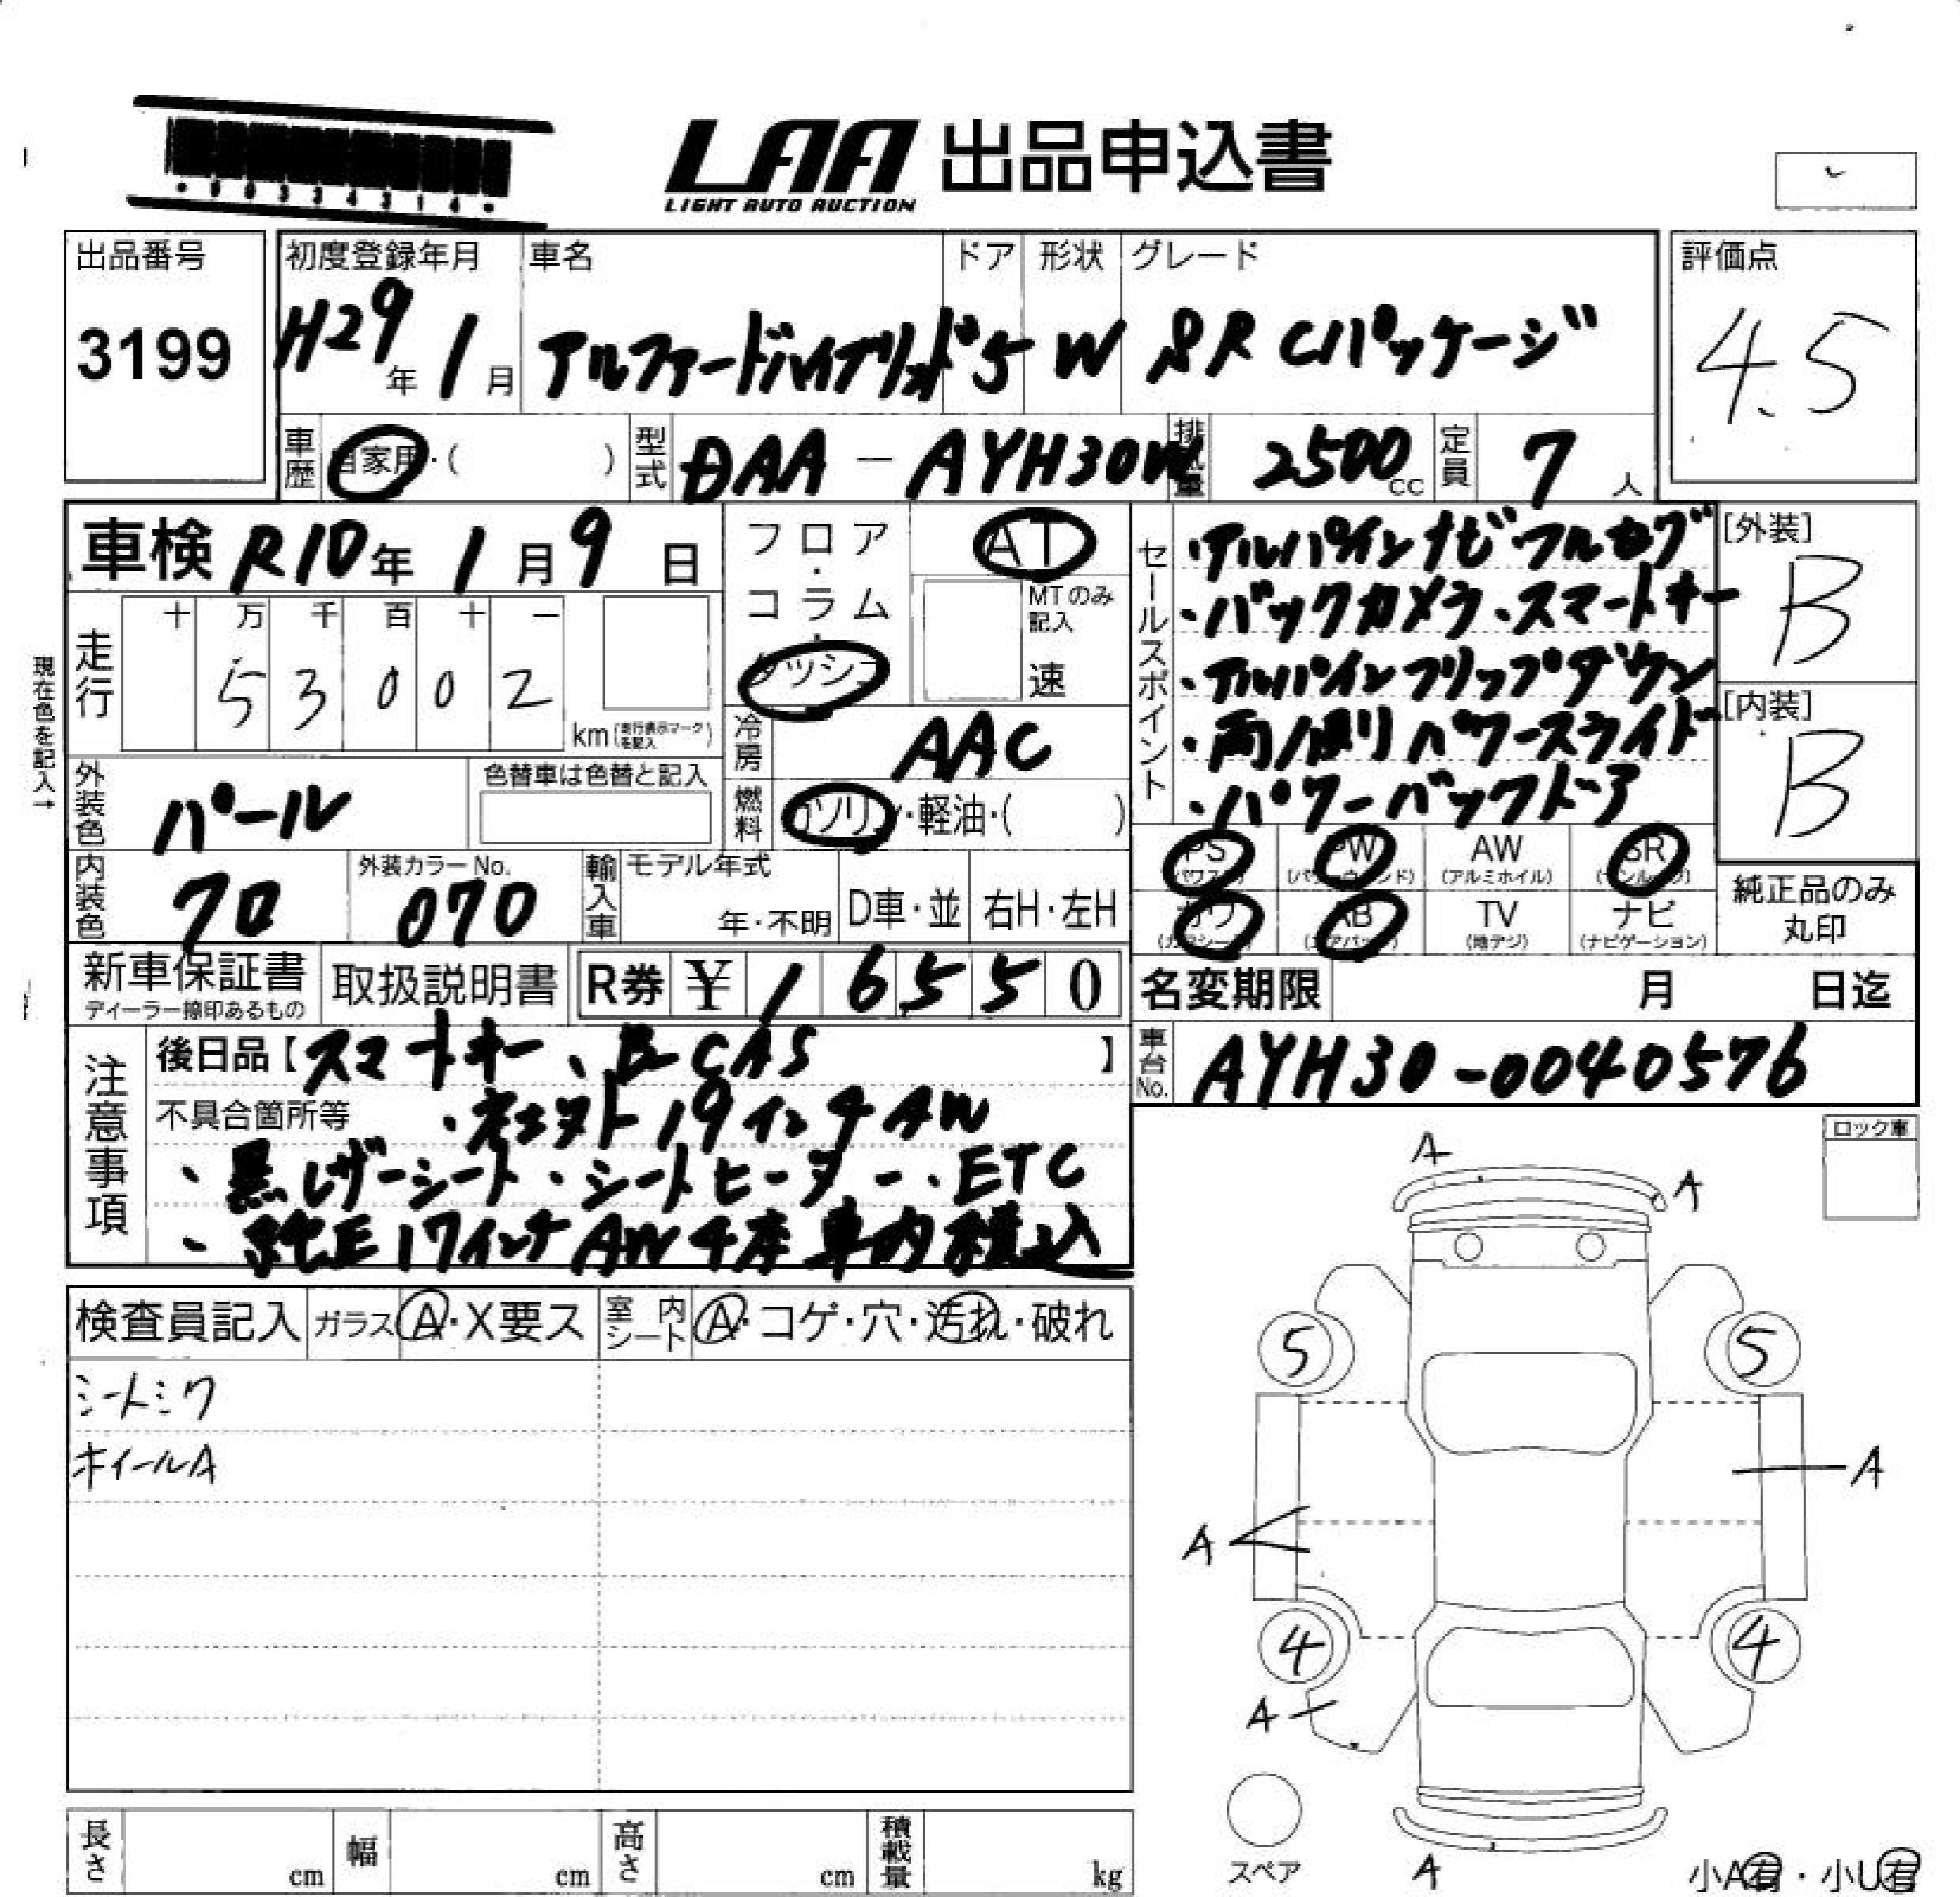 • 0 0 3 3 4 3 1 4 •
LAA 出品申込書
LIGHT AUTO AUCTION
出品番号 初度登録年月 車名 ドア 形状 グレード 評価点
3199 H29年 1月 アルファードハイブリッド 5 W SR Cパッケージ 4.5
車歴 自家用・( ) 型式 DAA-AYH30W 排気量 2500cc 定員 7人
車検 R10年 1月 9日
フロア・コラム・ダッシュ
AT
MTのみ記入
速
セールスポイント
・アルパインナビ フルセグ
・バックカメラ、スマートキー
・アルパインフリップダウン
・両側パワースライド
・パワーバックドア
[外装]
B
[内装]
B
現在色を記入→
走行 十 万 千 百 十 一
5 3 0 0 2
km(走行表示マークを記入)
冷房 AAC
外装色 パール 色替車は色替と記入
燃料 ガソリン・軽油・( )
PS(パワステ) PW(パワーウィンド) AW(アルミホイル) SR(サンルーフ)
カワ(カワシート) AB(エアバッグ) TV(地デジ) ナビ(ナビゲーション)
純正品のみ丸印
内装色 クロ 外装カラーNo. 070 輸入車 モデル年式 年・不明 D車・並 右H・左H
新車保証書 取扱説明書 R券 ¥ 1 6 5 5 0
ディーラー捺印あるもの
名変期限 月 日迄
車台No. AYH30-0040576
注意事項
後日品【スマートキー、B CAS】
不具合箇所等 ・19インチAW
、黒レザーシート・シートヒーター・ETC
、純正17インチAW4本車内積込
ロック車
検査員記入 ガラス A・X要ス 室内シート A・コゲ・穴・汚れ・破れ
シートシワ
ホイールA
A
A
5
5
A
A
4
4
A
スペア
A
小A有・小U有
長さ cm 幅 cm 高さ cm 積載量 kg